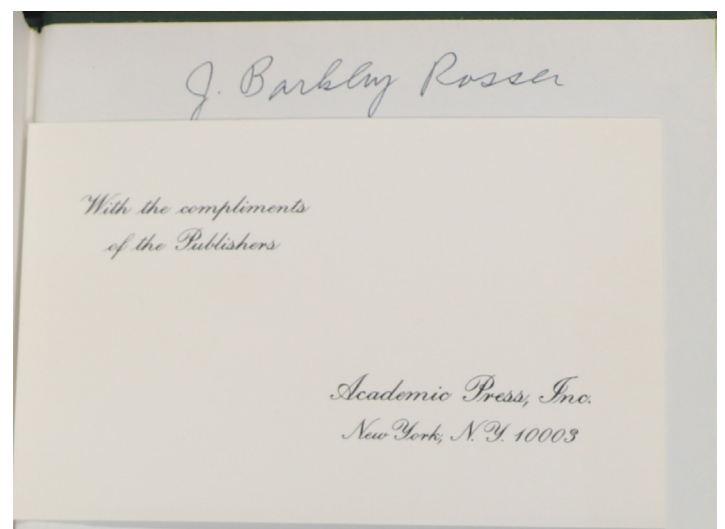 J. Barkley Rosser
With the compliments
of the Publishers
Academic Press, Inc.
New York, N. Y. 10003